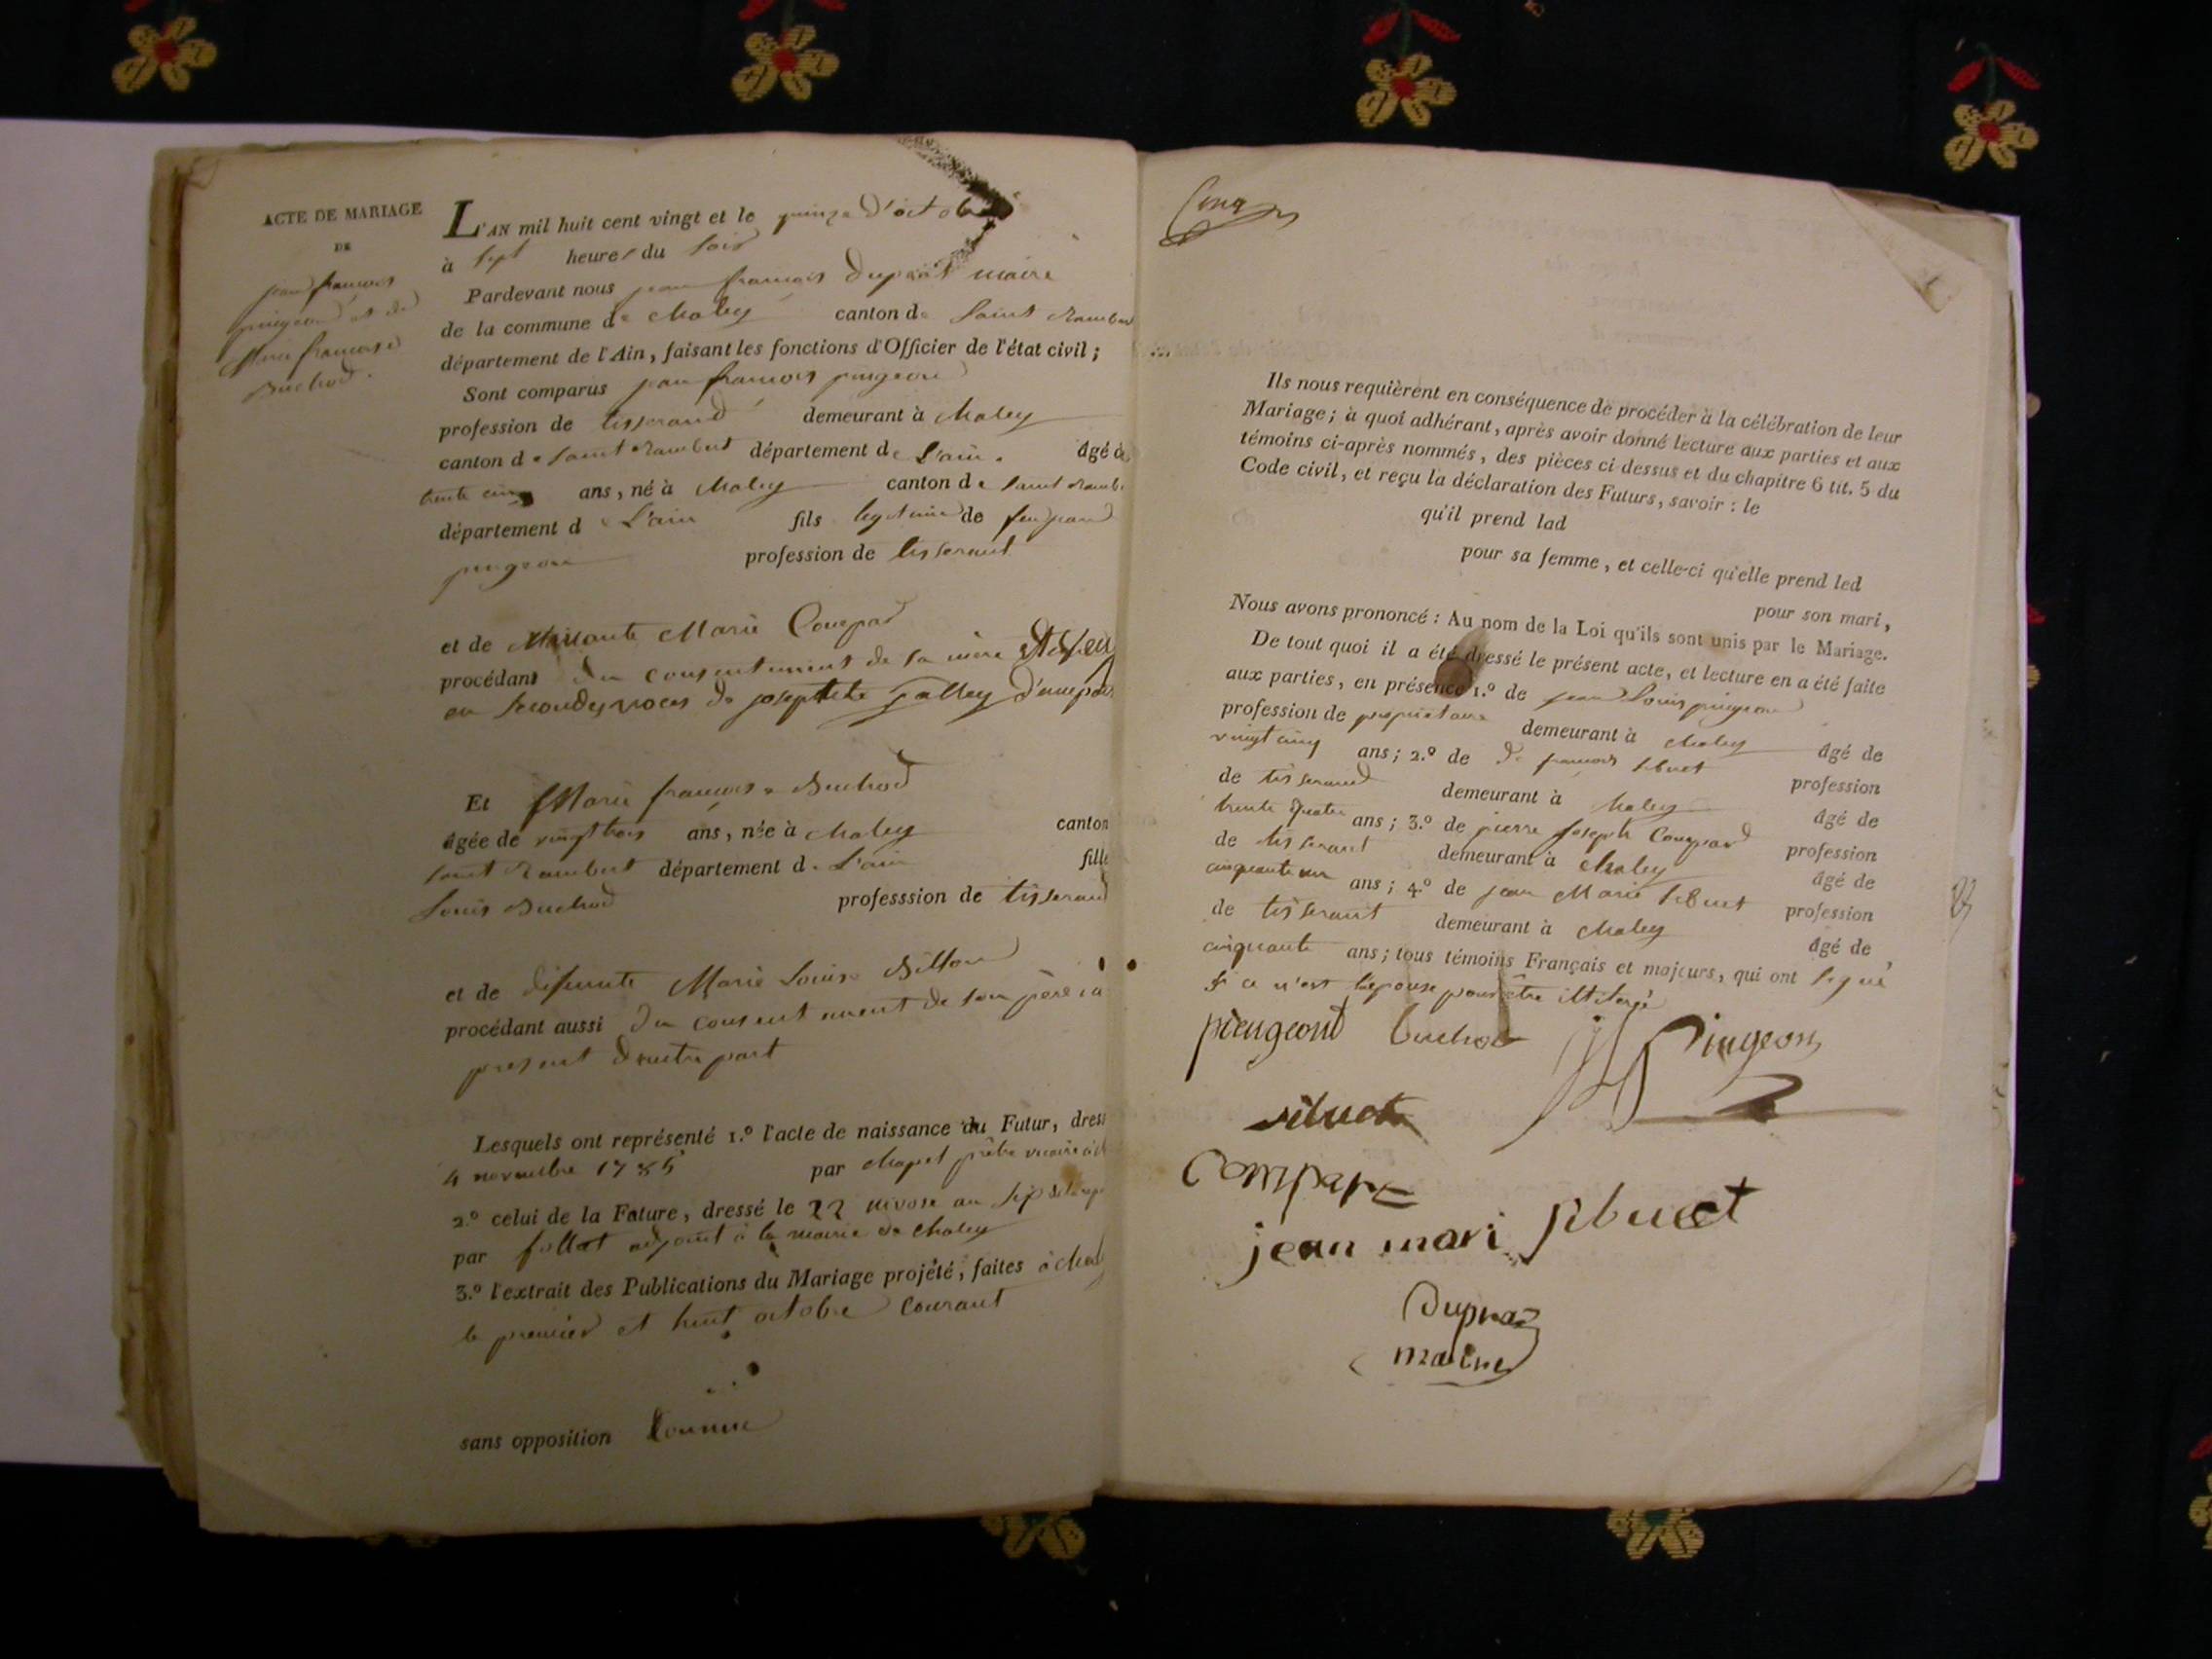 ACTE DE MARIAGE
DE
jean françois
pingeon et de
Marie françoise
Buchod.
L'AN mil huit cent vingt et le quinze d'octob
à sept heures du soir
Pardevant nous jean françois Duprat maire
de la commune de Chaley canton de Saint Rambert
département de l'Ain, faisant les fonctions d'Officier de l'état civil;
Sont comparus jean françois pingeon
profession de tisserand demeurant à Chaley
canton de Saint Rambert département de L'ain. âgé de
trente cinq ans, né à Chaley canton de Saint Ramb
département d L'ain fils legitime de feu jean
pingeon profession de tisserant
et de Marie Compar
procédant du consentement de sa mère
en secondes noces de joseph d'une part
Et Marie françoise Buchod
âgée de vingt trois ans, née à Chaley canton
Saint Rambert département de L'ain fille
Louis Buchod professsion de tisserand
et de defunte Marie Louise Billion
procédant aussi du consentement de son père ia
present d'autre part
Lesquels ont représenté 1.º l'acte de naissance du Futur, dres
4 novembre 1785 par Chapel prêtre vicaire à
2.º celui de la Future, dressé le 22 nivose an sept
par follet adjoint à la mairie de Chaley
3.º l'extrait des Publications du Mariage projeté, faites à Chal
le premier et huit octobre courant
sans opposition
Cinq
Ils nous requièrent en conséquence de procéder à la célébration de leur
Mariage; à quoi adhérant, après avoir donné lecture aux parties et aux
témoins ci-après nommés, des pièces ci dessus et du chapitre 6 tit. 5 du
Code civil, et reçu la déclaration des Futurs, savoir: le
qu'il prend lad
pour sa femme, et celle-ci qu'elle prend led
pour son mari,
Nous avons prononcé: Au nom de la Loi qu'ils sont unis par le Mariage.
De tout quoi il a été dressé le présent acte, et lecture en a été faite
aux parties, en présence 1.º de jean Louis pingeon
profession de propriétaire demeurant à Chaley âgé de
vingt cinq ans; 2.º de de françois sibuet profession
de tisserand demeurant à Chaley âgé de
trente quatre ans; 3.º de pierre joseph Compar profession
de tisserant demeurant à Chaley âgé de
cinquante un ans; 4.º de jean Marie sibuet profession
de tisserant demeurant à Chaley âgé de
cinquante ans; tous témoins Français et majeurs, qui ont signé
si ce n'est l'épouse pour être
piengeond buchod Pingeon
sibuet
Compar
jean mari sibuet
Dupraz
maire